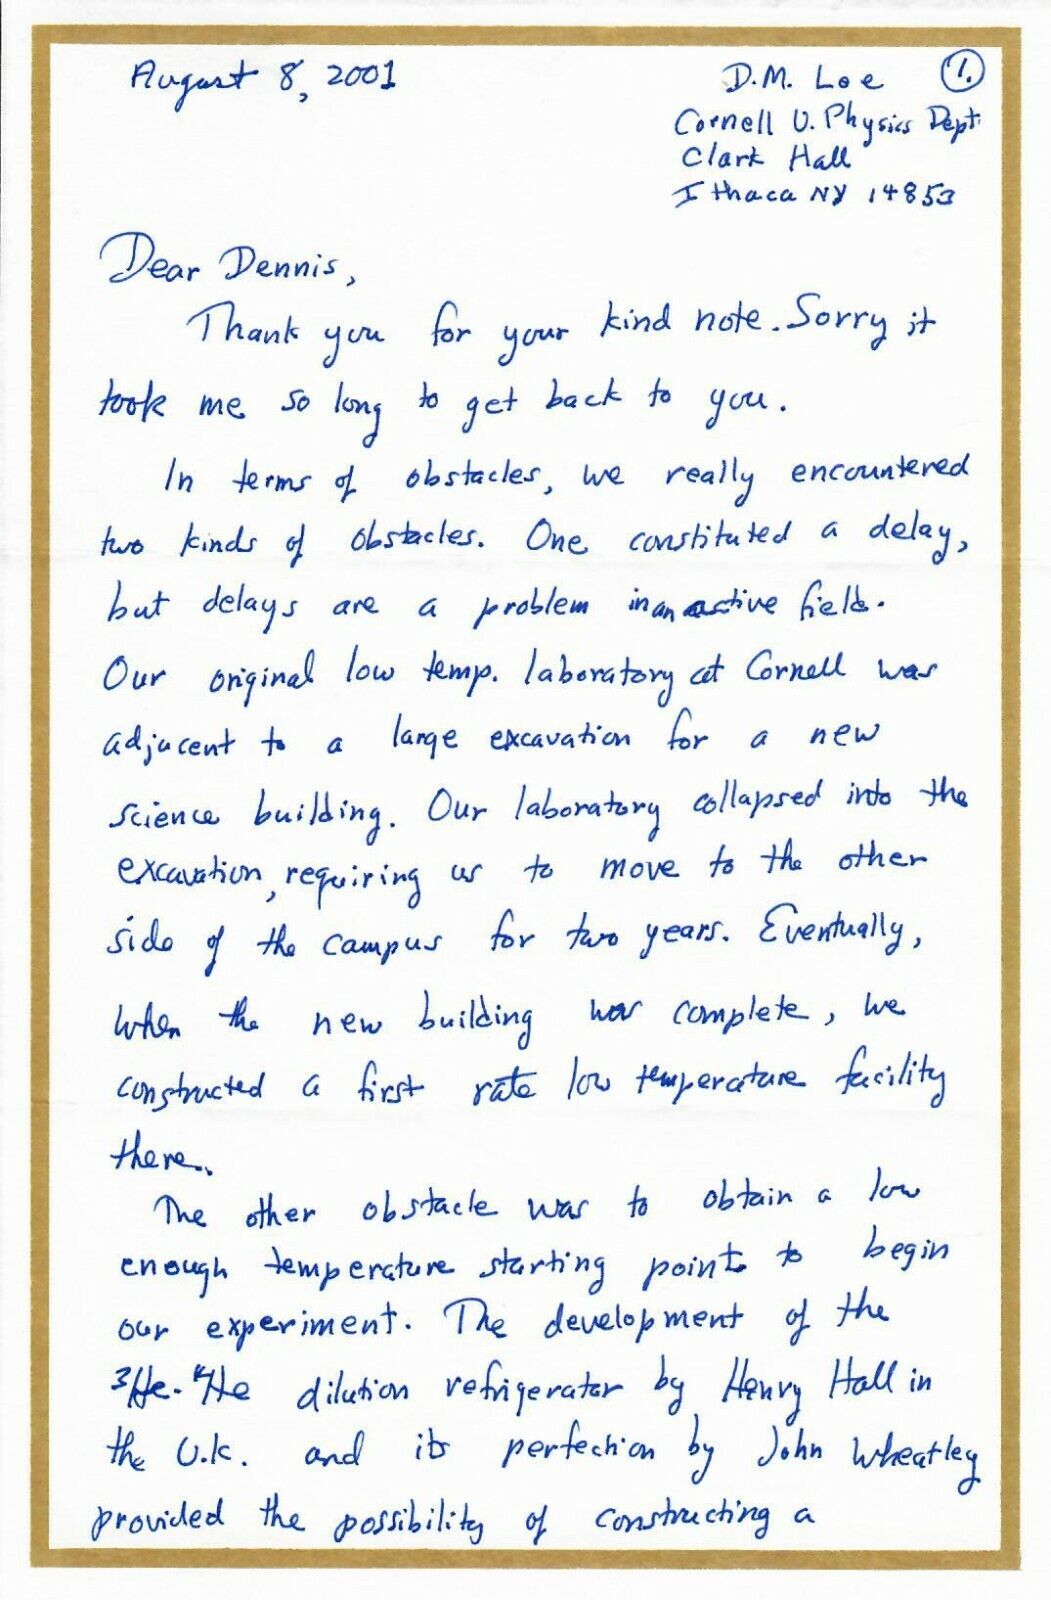 August 8, 2001
D.M. Lee 1.
Cornell U. Physics Dept.
Clark Hall
Ithaca NY 14853
Dear Dennis,
Thank you for your kind note. Sorry it
took me so long to get back to you.
In terms of obstacles, we really encountered
two kinds of obstacles. One constituted a delay,
but delays are a problem in an active field.
Our original low temp. laboratory at Cornell was
adjacent to a large excavation for a new
science building. Our laboratory collapsed into the
excavation, requiring us to move to the other
side of the campus for two years. Eventually,
when the new building was complete, we
constructed a first rate low temperature facility
there.
The other obstacle was to obtain a low
enough temperature starting point to begin
our experiment. The development of the
³He-⁴He dilution refrigerator by Henry Hall in
the U.K. and its perfection by John Wheatley
provided the possibility of constructing a